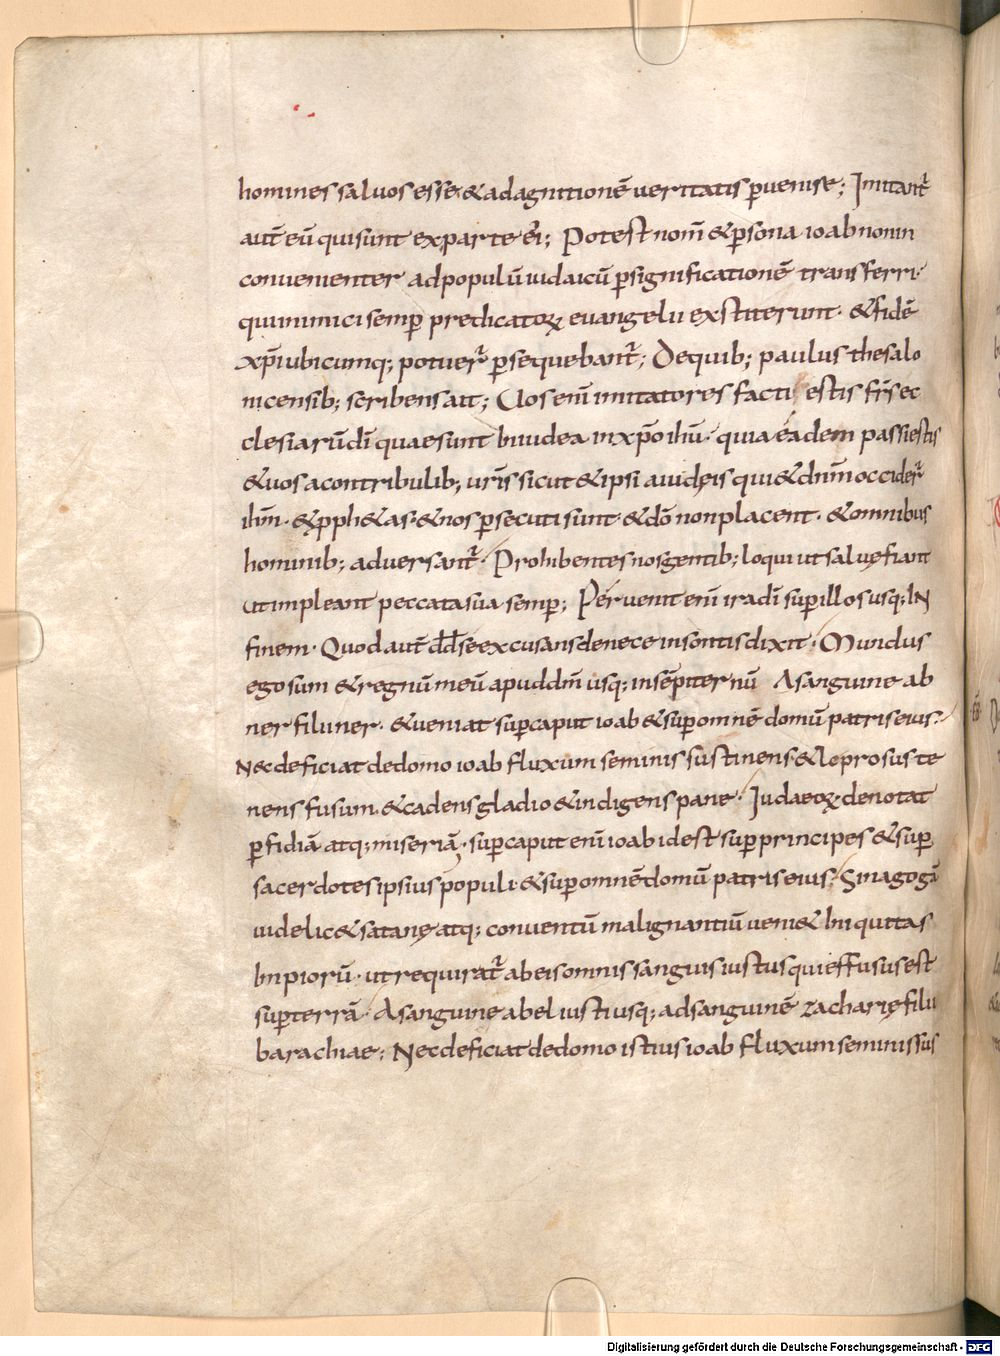 homines saluos esse & ad agnitionē ueritatis p̱uenire; Imitant̃
aut̄ eū qui sunt ex parte ei̅; Potest nom̄ & p̱sona ioab non in
conuenienter ad populū iudaicū p̱ significationē transferri·
qui inimici semp̱ predicatoꝝ euangelii exstiterunt· & fidē
xp̄i ubicumq; potuer̃ p̱sequebant̃; De quib; paulus thesalo
nicensib; scribens ait; Uos eni̅ imitatores facti estis fr̄s ec
clesiarū dī quae sunt in iudea in xp̄o ihū· quia eadem passi estis
& uos a contribulib; ur̄is sicut & ipsi a iudęis qui & dnm̄ occider̃
ihm̄· & p̱ph&as· & nos p̱secuti sunt· & dō non placent· & omnibus
hominib; aduersant̃· Prohibentes nos gentib; loqui ut saluę fiant
ut impleant peccata sua semp̱; Peruenit eni̅ ira dī sup̱ illos usq; IN
finem· Quod aut̄ dd̄ se excusans de nece insontis dixit· Mundus
ego sum & regnū meū apud dm̄ usq; in semp̱iternū A sanguine ab
ner filii ner· & ueniat sup̱ caput ioab & sup̱ omnē domū patris eius·
Nec deficiat de domo ioab fluxum seminis sustinens & leprosus te
nens fusum· & cadens gladio & indigens pane· Iudaeoꝝ denotat
p̱fidiā atq; miseriā· sup̱ caput eni̅ ioab id est sup̱ principes & sup̱
sacerdotes ipsius populi· & sup̱ omnē domū patris eius· Sinagogā
uidelic& satanę atq; conuentū malignantiū ueni& Iniquitas
Impiorū· ut requirat̃ ab eis omnis sanguis iustus qui effusus est
sup̱ terrā· A sanguine abel iusti usq; ad sanguinē zacharię filii
barachiae; Nec deficiat de domo istius ioab fluxum seminis sus
Digitalisierung gefördert durch die Deutsche Forschungsgemeinschaft - DFG